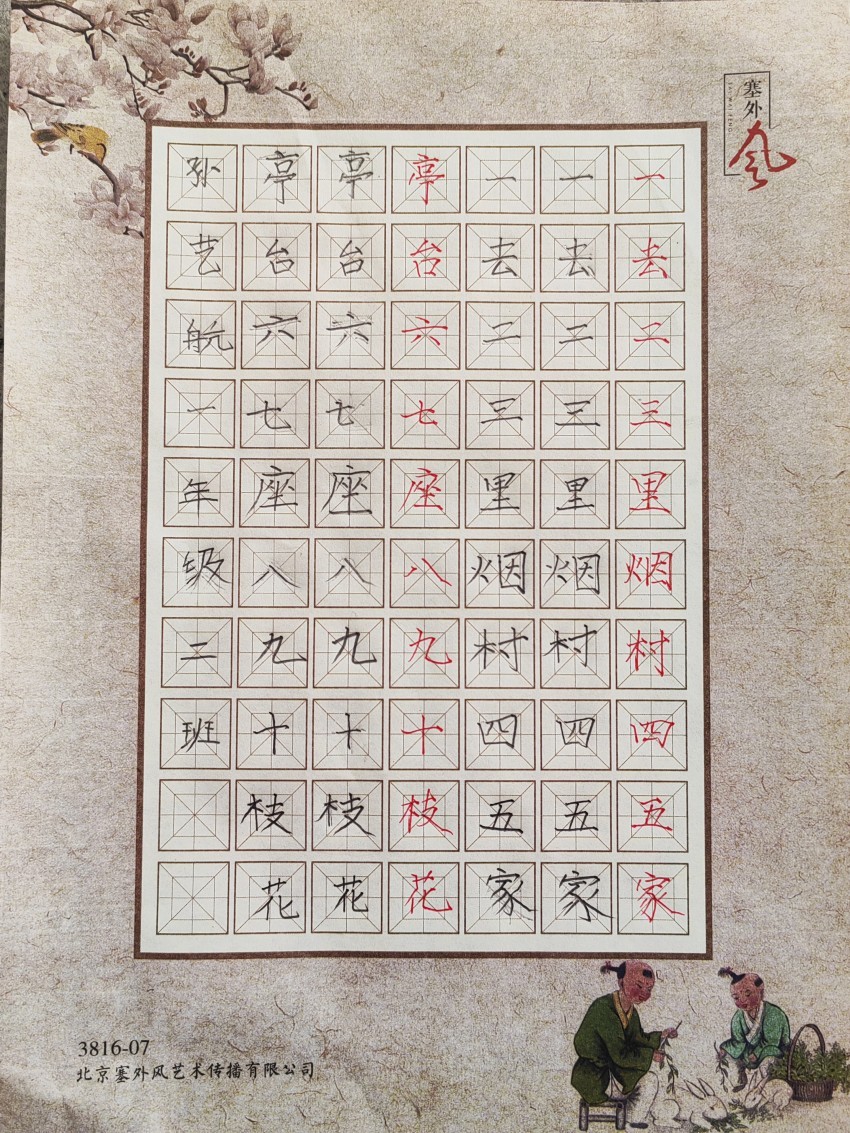 塞外风
一去二三里烟村四五家
一去二三里烟村四五家
一去二三里烟村四五家
亭台六七座八九十枝花
亭台六七座八九十枝花
亭台六七座八九十枝花
孙艺航一年级二班
3816-07
北京塞外风艺术传播有限公司